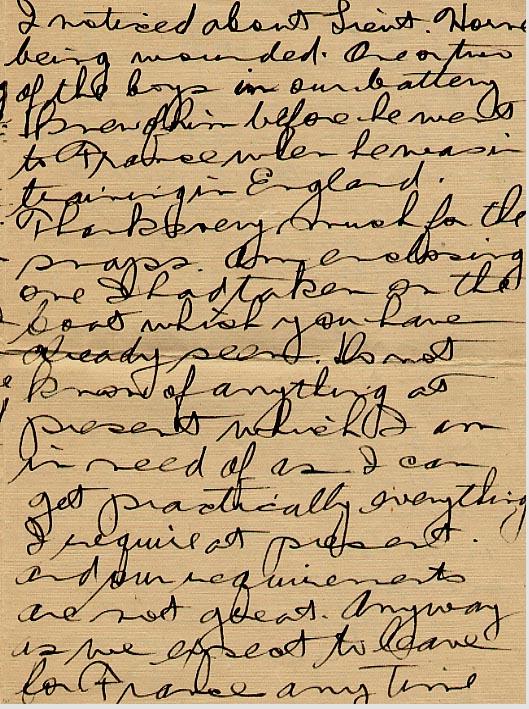 I noticed about Lieut. Horne
being wounded. One or two
of the boys in our battery
knew of him before he went
to France when he was in
training in England.
Thanks very much for the
snaps. Am enclosing
one I had taken on the
boat which you have
already seen. Do not
know of anything at
present which I am
in need of as I can
get practically everything
I require at present.
and our requirements
are not great. Anyway
as we expect to leave
for France any time